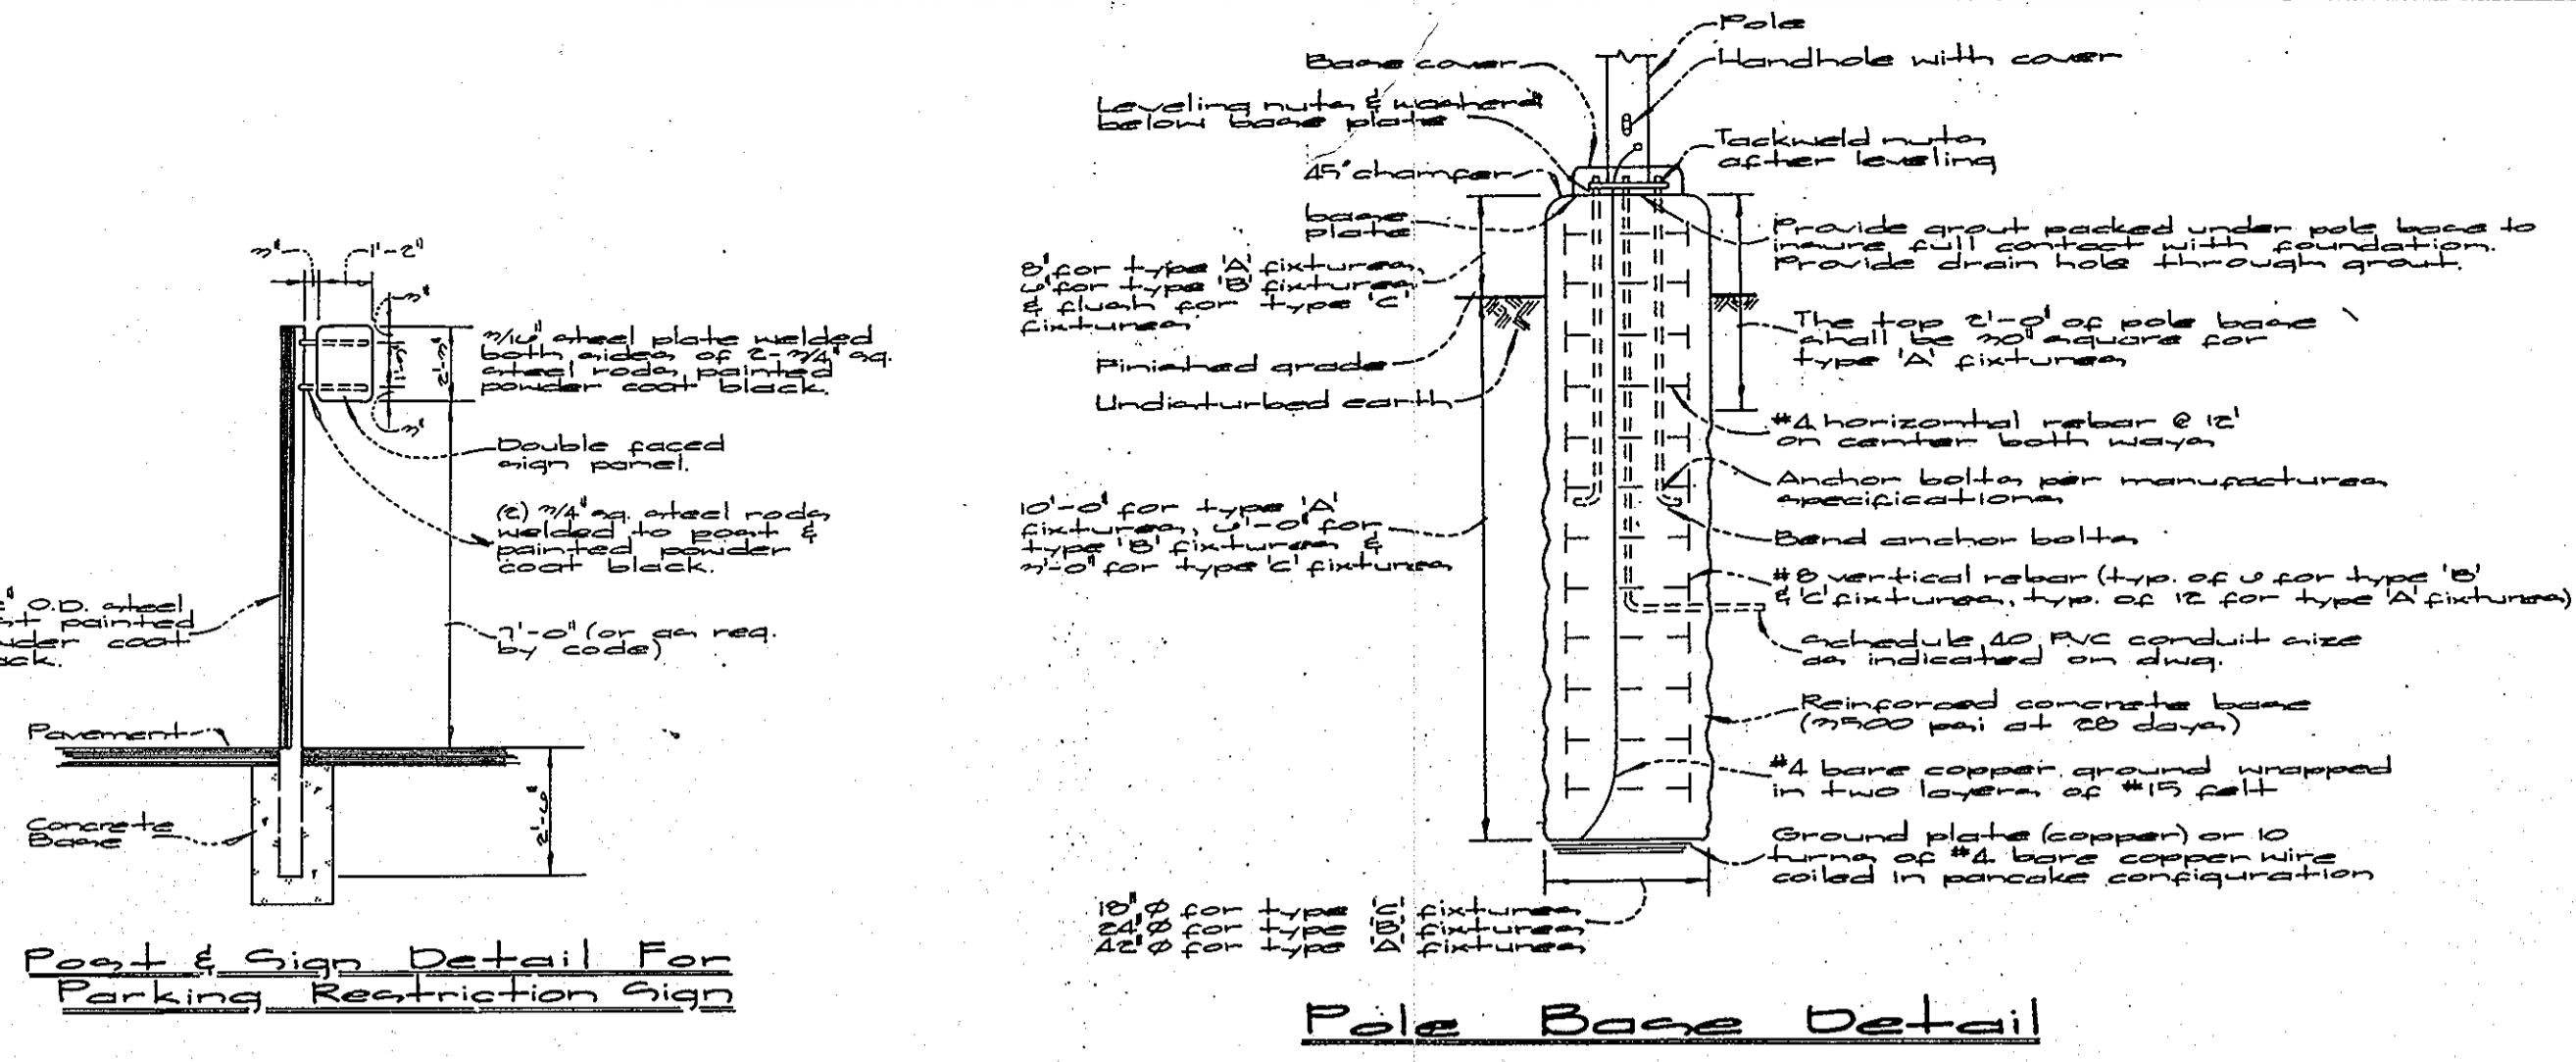 3"
1'-2"
3"
3"
1'-3"
3/16" steel plate welded
both sides of 2-3/4" sq.
steel rods painted
powder coat black.
Double faced
sign panel.
(2) 3/4" sq. steel rods
welded to post &
painted powder
coat black.
O.D. steel
painted
coat
7'-0" (or as req.
by code)
Pavement
Concrete
Base
2'-6"
Post & Sign Detail For
Parking Restriction Sign
Pole
Handhole with cover
Base cover
Leveling nuts & washers
below base plate
Tackweld nuts
after leveling
45° chamfer
base
plate
Provide grout packed under pole base to
insure full contact with foundation.
Provide drain hole through grout.
8" for type 'A' fixtures,
6" for type 'B' fixtures
& flush for type 'C'
fixtures
The top 2'-0" of pole base
shall be 30" square for
type 'A' fixtures
Finished grade
Undisturbed earth
#4 horizontal rebar @ 12"
on center both ways
Anchor bolts per manufactures
specifications
10'-0" for type 'A'
fixtures, 6'-0" for
type 'B' fixtures &
3'-0" for type 'C' fixtures
Bend anchor bolts
#8 vertical rebar (typ. of 6 for type 'B'
& 'C' fixtures, typ. of 12 for type 'A' fixtures)
Schedule 40 PVC conduit size
as indicated on dwg.
Reinforced concrete base
(3500 psi at 28 days)
#4 bare copper ground wrapped
in two layers of #15 felt
Ground plate (copper) or 10
turns of #4 bare copper wire
coiled in pancake configuration
18" Ø for type 'C' fixtures
24" Ø for type 'B' fixtures
42" Ø for type 'A' fixtures
Pole Base Detail